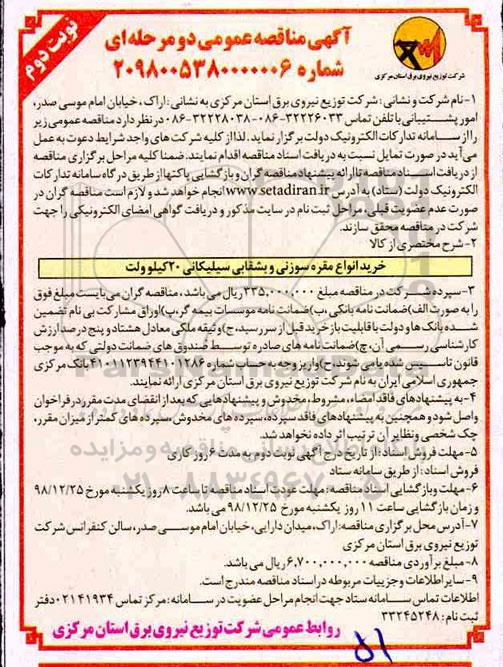 نوبت دوم
شرکت توزیع نیروی برق استان مرکزی
آگهی مناقصه عمومی دو مرحله ای
شماره ۲۰۹۸۰۰۵۳۸۰۰۰۰۰۰۶
۱-نام شرکت و نشانی : شرکت توزیع نیروی برق استان مرکزی به نشانی : اراک ، خیابان امام موسی صدر،
امور پشتیبانی با تلفن تماس ۳۲۲۲۶۰۳۳-۰۸۶ ۳۲۲۲۸۰۳۸-۰۸۶ در نظر دارد مناقصه عمومی زیر
را از سامانه تدارکات الکترونیک دولت برگزار نماید. لذا از کلیه شرکت های واجد شرایط دعوت به عمل
می آید در صورت تمایل نسبت به دریافت اسناد مناقصه اقدام نمایند. ضمنا کلیه مراحل برگزاری مناقصه
از دریافت اسناد مناقصه تا ارائه پیشنهاد مناقصه گران و بازگشایی پاکتها از طریق درگاه سامانه تدارکات
الکترونیک دولت (ستاد) به آدرس www.setadiran.ir انجام خواهد شد و لازم است مناقصه گران در
صورت عدم عضویت قبلی، مراحل ثبت نام در سایت مذکور و دریافت گواهی امضای الکترونیکی را جهت
شرکت در مناقصه محقق سازند.
۲-شرح مختصری از کالا
خرید انواع مقره سوزنی و بشقابی سیلیکانی ۲۰ کیلو ولت
۳-سپرده شرکت در مناقصه مبلغ ۳۳۵,۰۰۰,۰۰۰ ریال می باشد ، مناقصه گران می بایست مبلغ فوق
را به صورت الف) ضمانت نامه بانکی ، ب) ضمانت نامه موسسات بیمه گر، پ) اوراق مشارکت بی نام تضمین
شده بانک ها و دولت با قابلیت باز خرید قبل از سررسید، ح) وثیقه ملکی معادل هشتاد و پنج درصد ارزش
کارشناسی رسمی آن، چ) ضمانت نامه های صادره توسط صندوق های ضمانت دولتی که به موجب
قانون تاسیس شده یا می شوند، ح) واریز وجه به حساب شماره ۴۱۰۱۱۲۳۹۴۴۱۰۱۲۸۶ بانک مرکزی
جمهوری اسلامی ایران به نام شرکت توزیع نیروی برق استان مرکزی ارائه نمایند.
۴-به پیشنهادهای فاقد امضاء، مشروط، مخدوش و پیشنهادهایی که بعد از انقضای مدت مقرر در فراخوان
واصل شود و همچنین به پیشنهادهای فاقد سپرده، سپرده های مخدوش، سپرده های کمتر از میزان مقرر،
چک شخصی و نظایر آن ترتیب اثر داده نخواهد شد.
۵-مهلت فروش اسناد : از تاریخ درج آگهی نوبت دوم به مدت ۶ روز کاری
فروش اسناد : از طریق سامانه ستاد
۶-مهلت و بازگشایی اسناد مناقصه: مهلت عودت اسناد مناقصه تا ساعت ۸ روز یکشنبه مورخ ۹۸/۱۲/۲۵
و زمان بازگشایی ساعت ۱۱ روز یکشنبه مورخ ۹۸/۱۲/۲۵ می باشد.
۷-آدرس محل برگزاری مناقصه: اراک، میدان دارایی، خیابان امام موسی صدر، سالن کنفرانس شرکت
توزیع نیروی برق استان مرکزی
۸-مبلغ برآوردی مناقصه ۶,۷۰۰,۰۰۰,۰۰۰ ریال می باشد.
۹-سایر اطلاعات و جزییات مربوطه در اسناد مناقصه مندرج است.
اطلاعات تماس سامانه ستاد جهت انجام مراحل عضویت در سامانه : مرکز تماس ۰۲۱۴۱۹۳۴ دفتر
ثبت نام : ۳۳۲۴۵۲۴۸
روابط عمومی شرکت توزیع نیروی برق استان مرکزی
۵۱
۰۲۱-۸۸۳۴۹۶۷۰-۵